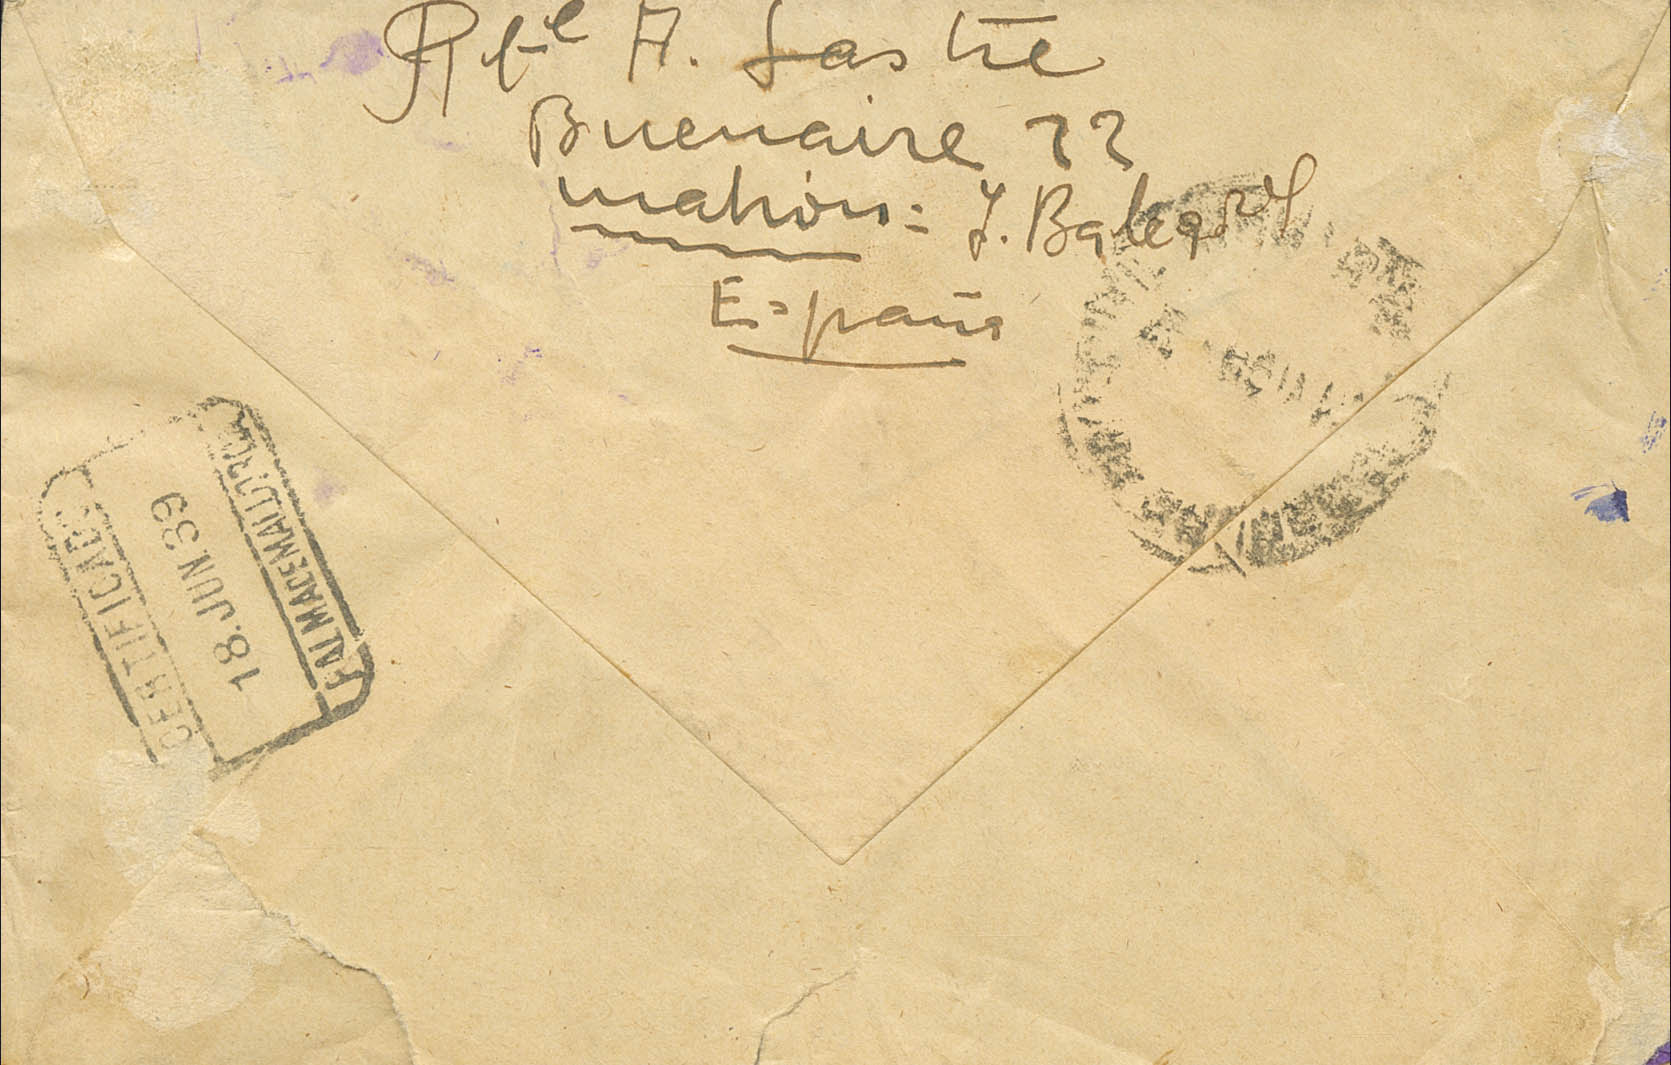 Rfel A. Sastre
Buenaire 22
Mahón: I. Baleares
España
CERTIFICADO
18.JUN 39
PALMA DE MALLORCA